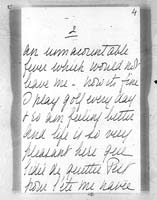 4
2
an unnacountable
fever which would not
leave me - now its fine
I play golf every day
& so am feeling better
and life is so very
pleasant here que
l'idée de quitter Pet
pour l'été me navre